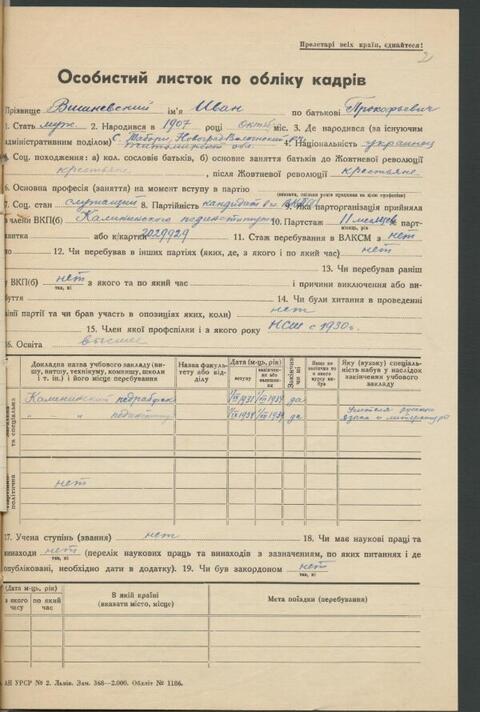 Пролетарі всіх країн, єднайтеся!
2
Особистий листок по обліку кадрів
Прізвище Вишневский ім'я Иван по батькові Прокофьевич
1. Стать муж. 2. Народився в 1907 році октяб міс. 3. Де народився (за існуючим
адміністративним поділом) 4. Національність украинец
5. Соц. походження: а) кол. сословіє батьків, б) основне заняття батьків до Жовтневої революції
крестьяне, після Жовтневої революції крестьяне
6. Основна професія (заняття) на момент вступу в партію
7. Соц. стан служащий 8. Партійність кандидат в чл ВКП(б) 9. Яка парторганізація прийняла
в члени ВКП(б) Калининского пединститута 10. Партстаж 11 месяцев парт-
квитка або к/картки 3029929 11. Стаж перебування в ВЛКСМ з нет
по 12. Чи перебував в інших партіях (яких, де, з якого і по який час) нет
13. Чи перебував раніш
у ВКП(б) нет з якого та по який час і причини виключення або ви-
так, ні
буття 14. Чи були хитання в проведенні
лінії партії та чи брав участь в опозиціях яких, коли) нет
15. Член якої профспілки і з якого року НСШ с 1930 г.
16. Освіта высшее
Докладна назва учбового закладу (вищу, витшу, технікуму, комвишу, школи і т. ін.) і його місце перебування
Назва факультету або відділу
Дата (м-ць, рік)
вступу
закінчення або вишення
Закінчив чи ні
Якщо не закінчив то з якого курсу вибув
Яку (вузьку) спеціальність набув у наслідок закінчення учбового закладу
Калининский педрабфак 1931 1934 да
" " пединститут 1934 1939 да Учителя русского языка и литературы
та спеціальна
політична
нет
17. Учена ступінь (звання) нет 18. Чи має наукові праці та
винаходи нет (перелік наукових праць та винаходів з зазначенням, по яких питаннях і де
так, ні
опубліковані, необхідно дати в додатку). 19. Чи був закордоном нет
так, ні
Дата (м-ць, рік)
з якого часу
по який час
В якій країні (вказати місто, місце)
Мета поїздки (перебування)
АН УРСР № 2. Львів. Зам. 368—2.000. Обліт № 1186.